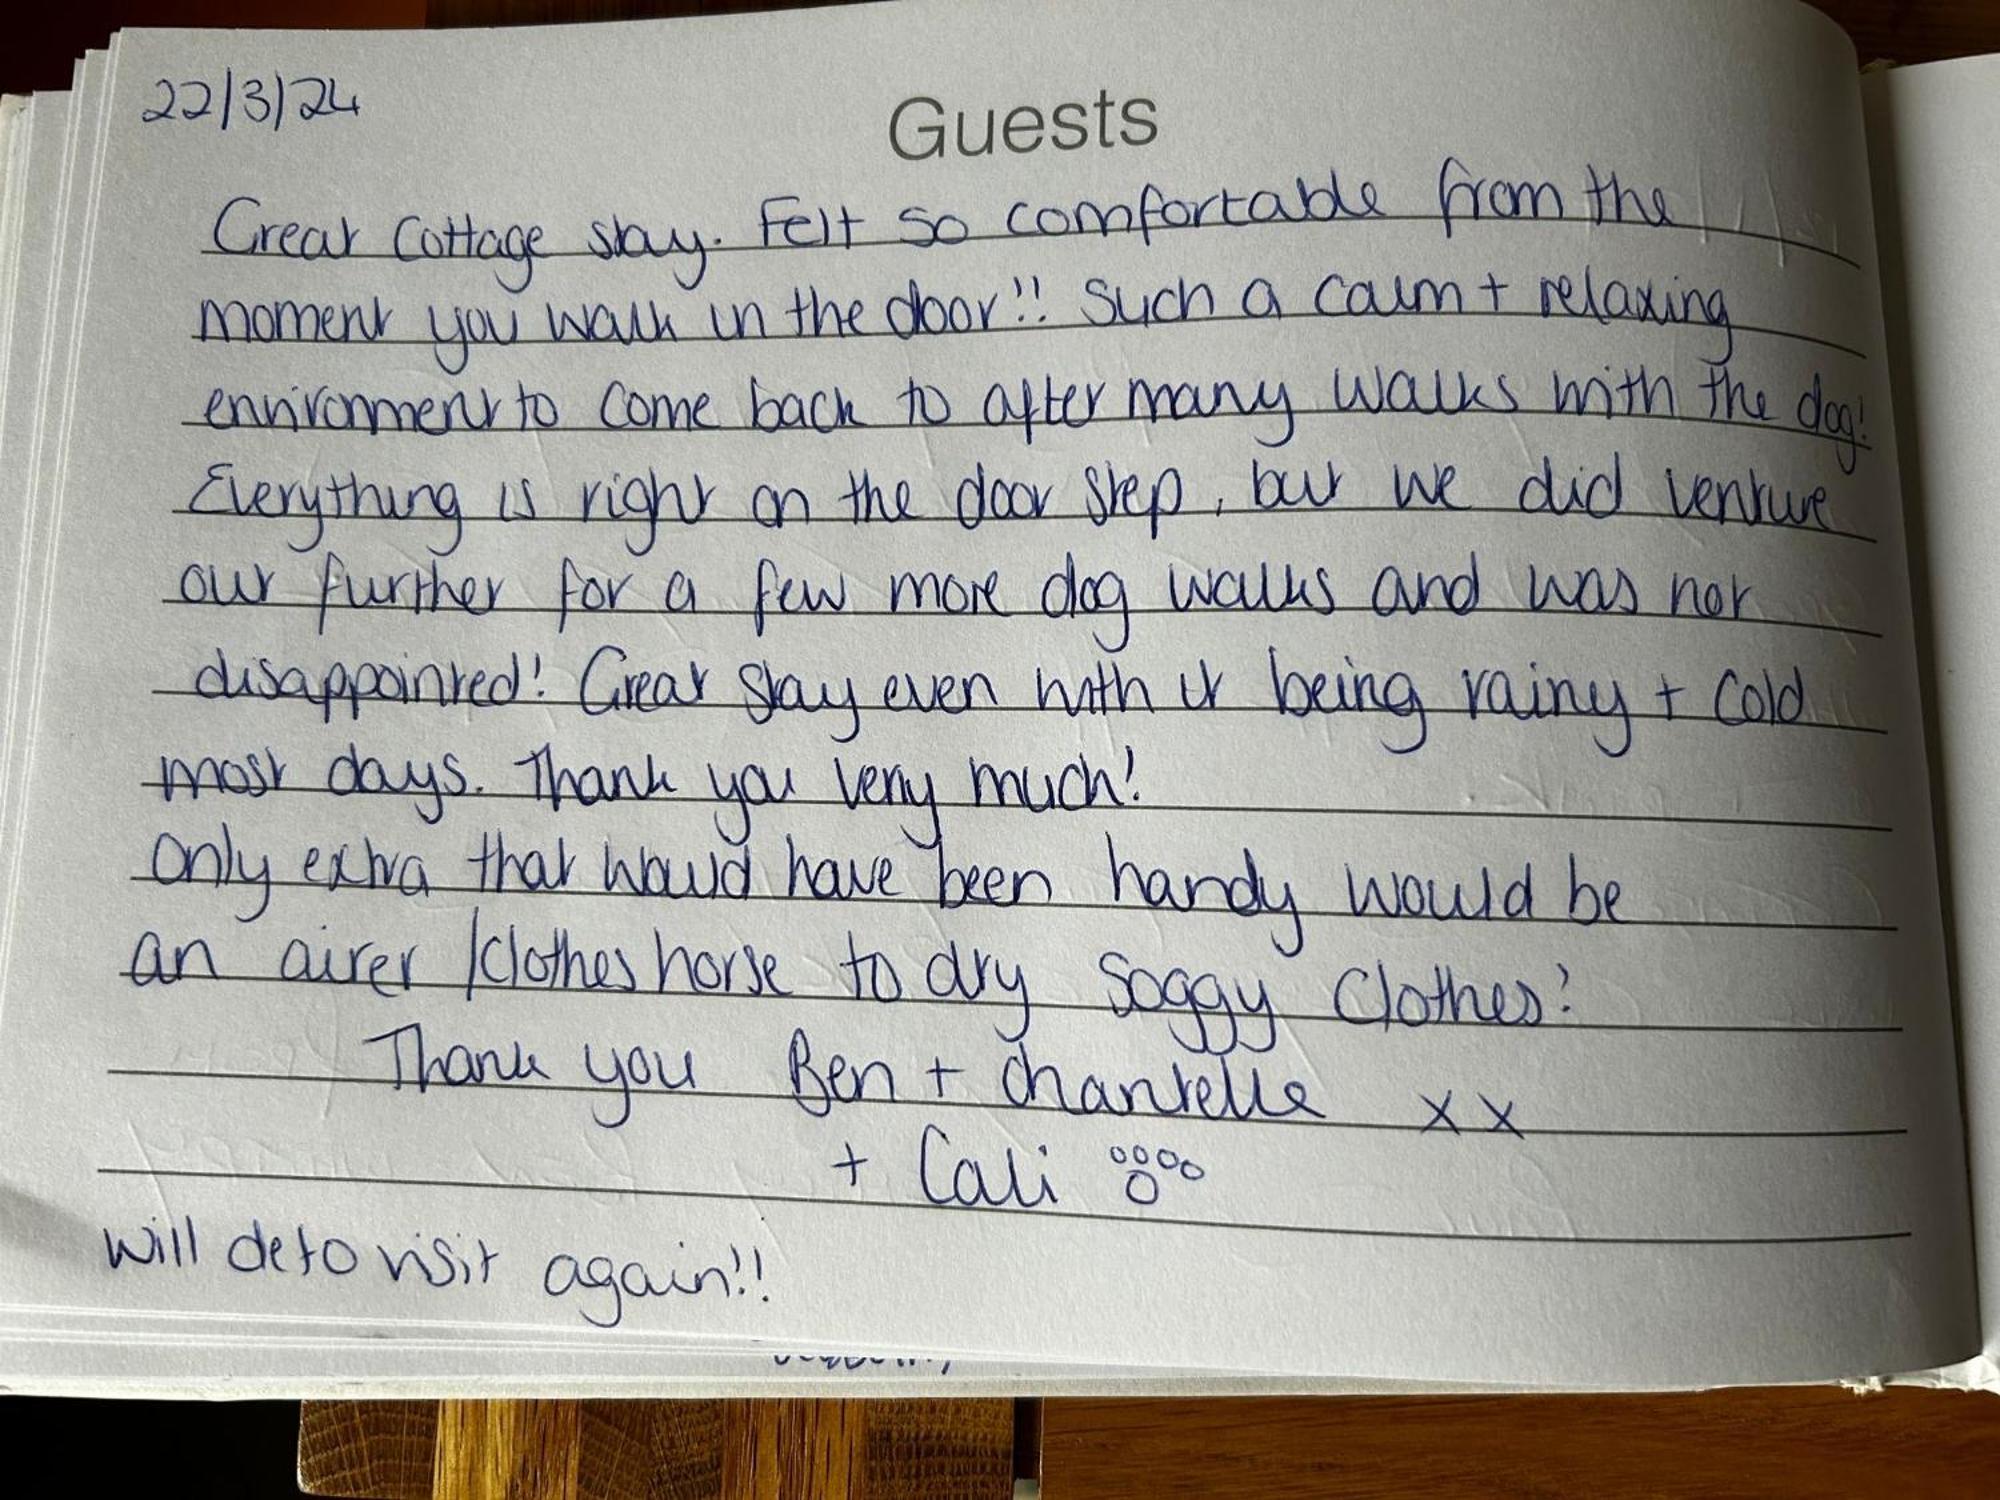 22/3/24
Guests
Great Cottage stay. Felt so comfortable from the
moment you walk in the door!! Such a calm + relaxing
environment to come back to after many walks with the dog!
Everything is right on the door step, but we did venture
out further for a few more dog walks and was not
disappointed! Great stay even with it being rainy + cold
most days. Thank you very much!
Only extra that would have been handy would be
an airer /clothes horse to dry soggy clothes!
Thank you Ben + Chantelle xx
+ Cali
will deto visit again!!